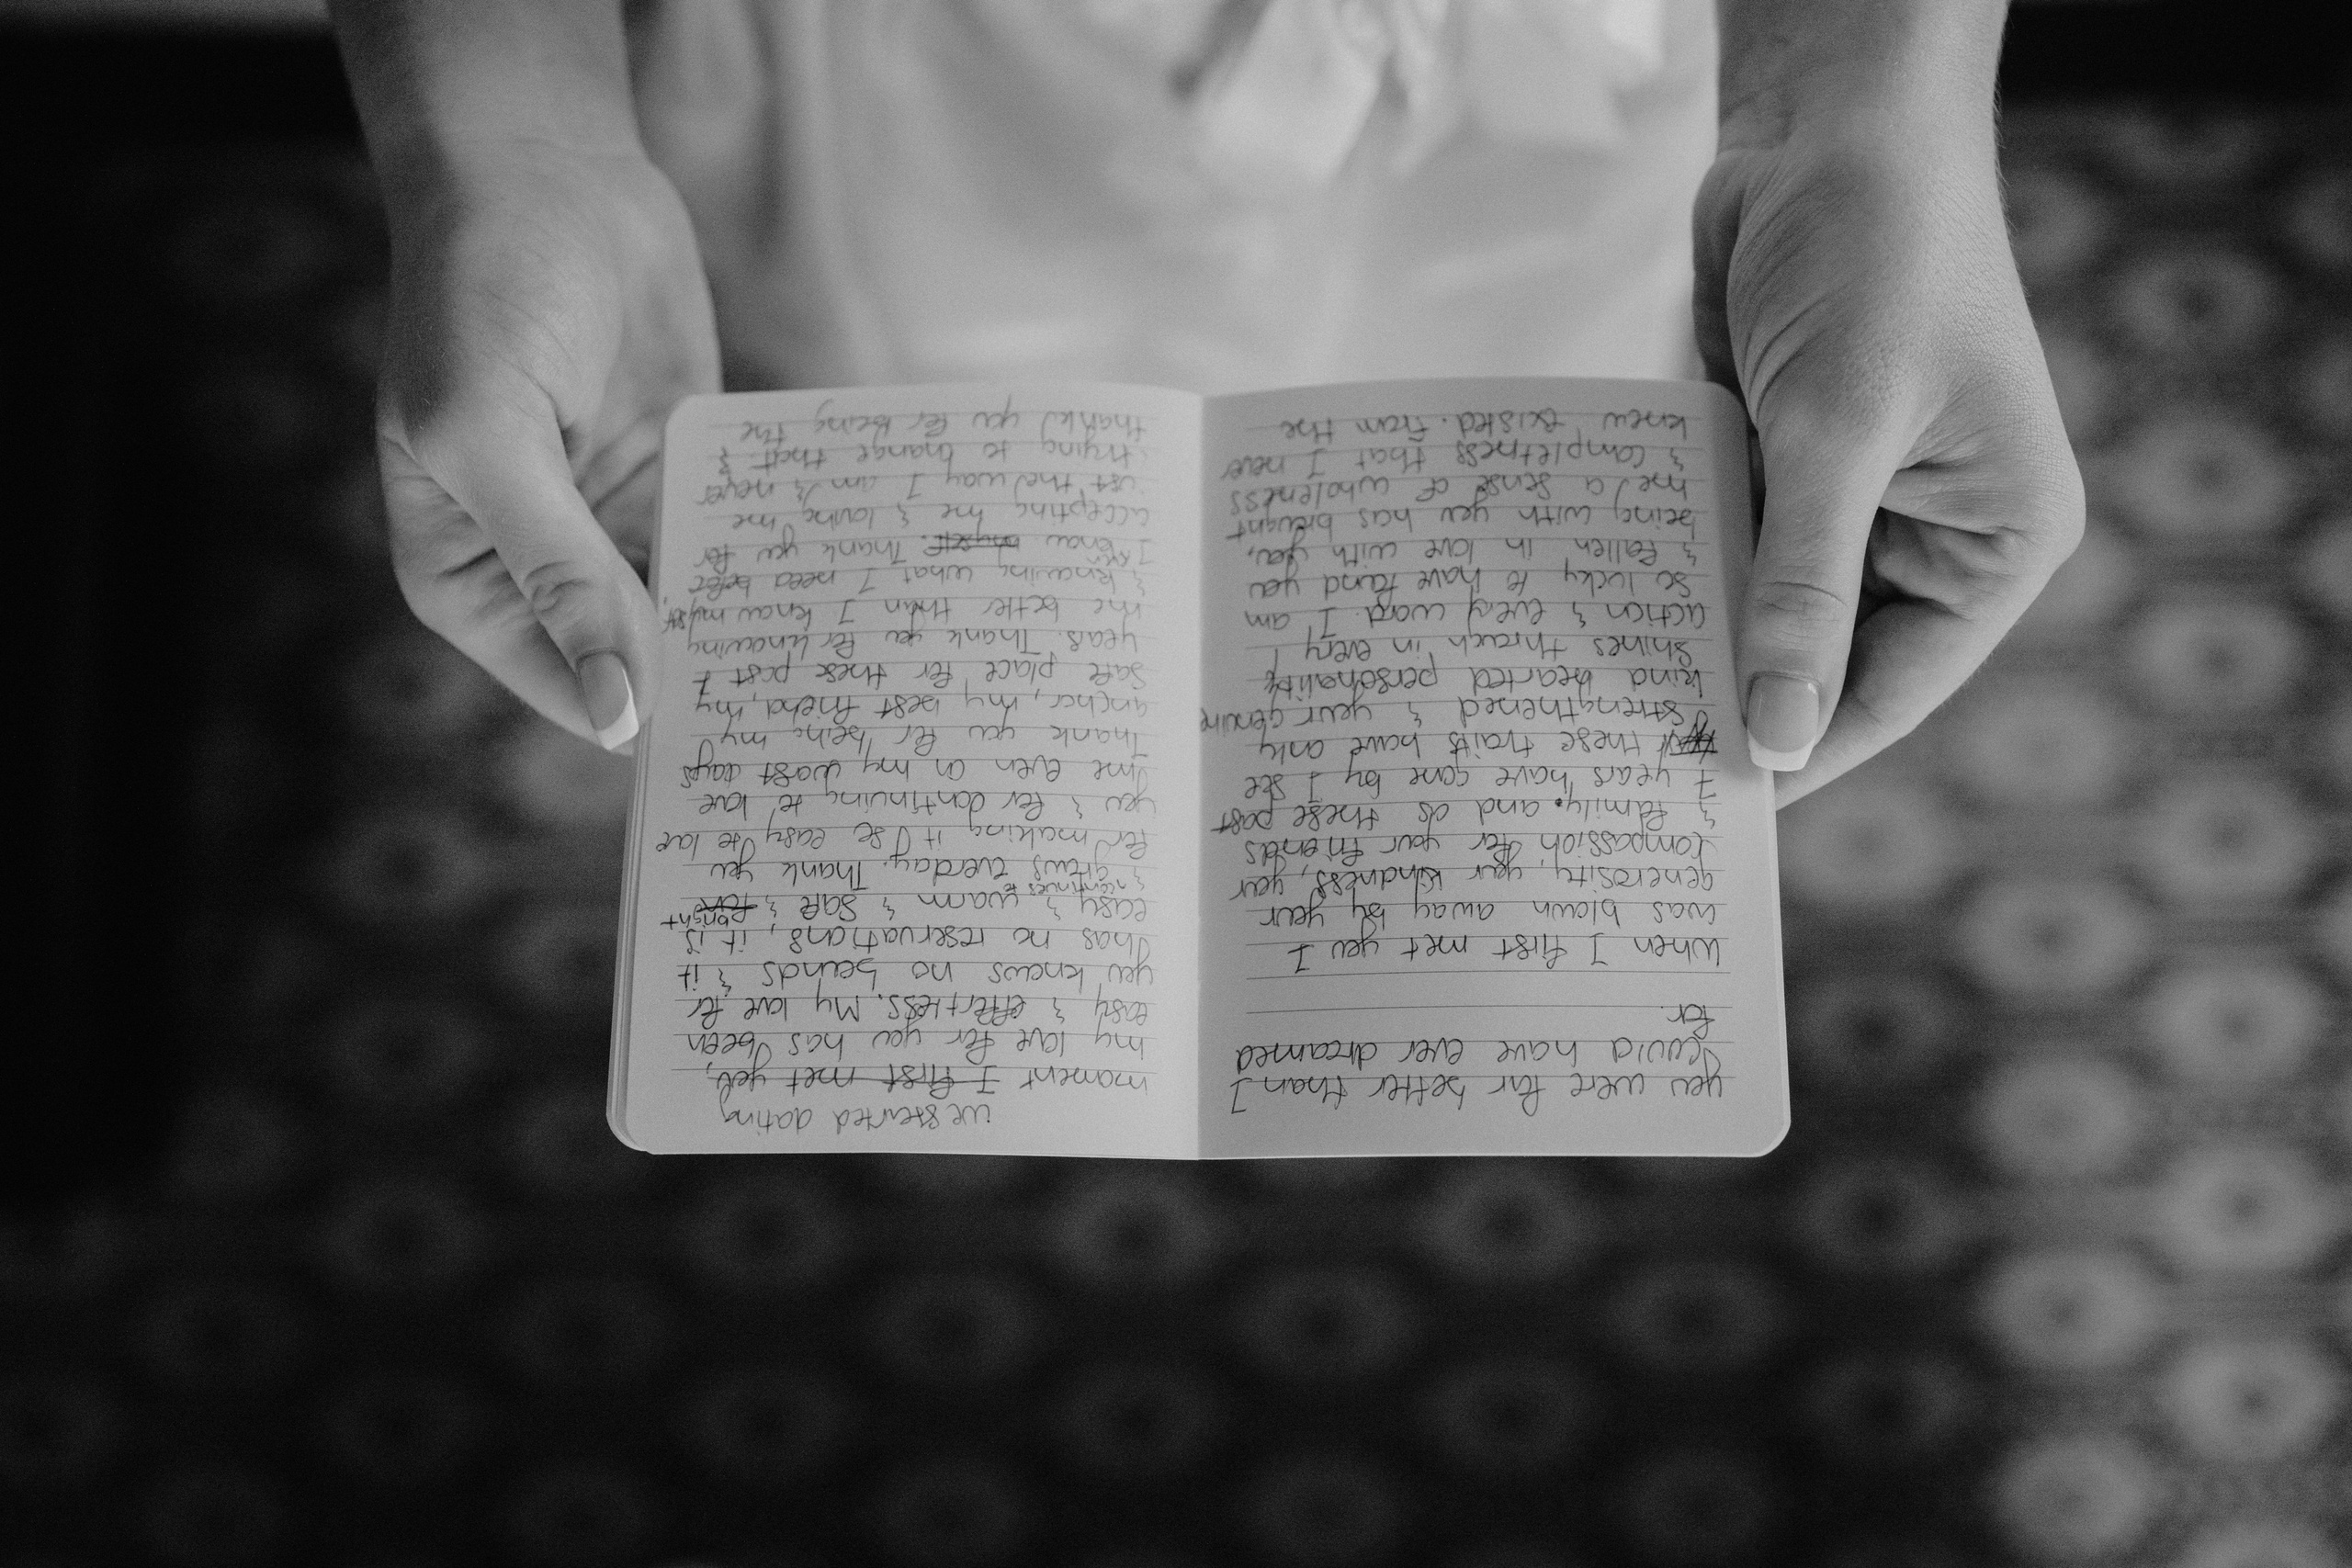 you were far better than I
could have ever dreamed
for.
When I first met you I
was blown away by your
generosity, your kindness, your
compassion, for your friends
& family. and as these past
7 years have gone by I see
all these traits have only
strengthened & your genuine
kind hearted personality
shines through in every
action & every word. I am
so lucky to have found you
& fallen in love with you,
being with you has brought
me a sense of wholeness
& completness that I never
knew existed. From the
we started dating
moment I first met you,
my love for you has been
easy & effortless. My love for
you knows no bounds & it
has no reservations, it is
easy & warm & safe & bright
& continues to
& grows everday. Thank you
for making it so easy to love
you & for continuing to love
me even on my worst days
Thank you for being my
anchor, my best friend, my
safe place for these past 7
years. Thank you for knowing
me better than I know myself,
& knowing what I need before
I even know myself. Thank you for
accepting me & loving me
just the way I am & never
trying to change that &
thank you for being the